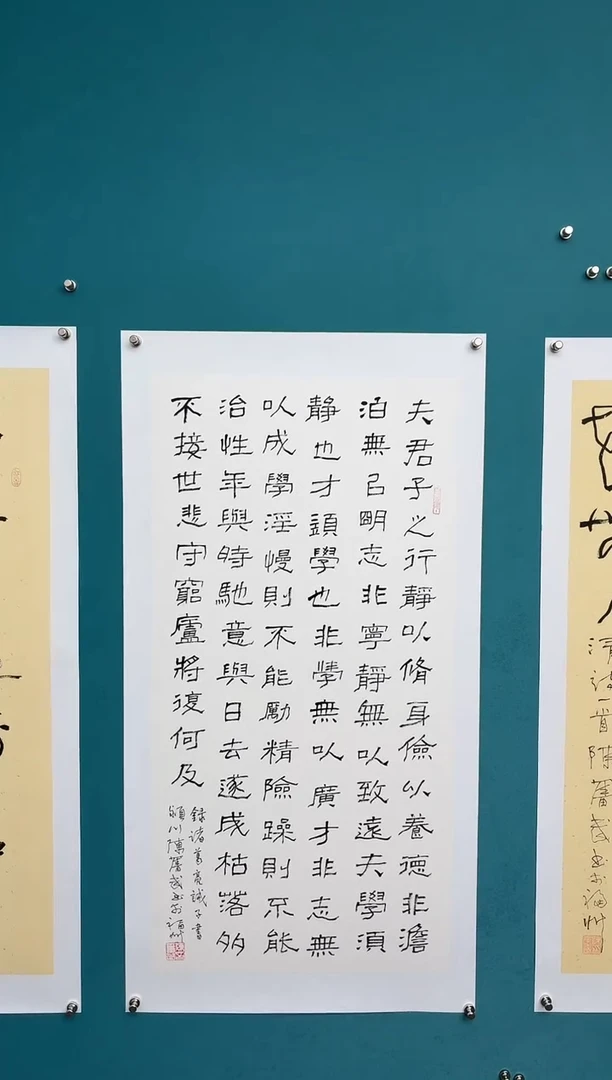 夫君子之行靜以脩身儉以養德非澹
泊無以明志非寧靜無以致遠夫學須
靜也才頭學也非學無以廣才非志無
以成學淫慢則不能勵精險躁則不能
治性年與時馳意與日去遂成枯落多
不接世悲守窮廬將復何及
錄諸葛亮誡子書
潁川陳奮武書於福州
一首陳奮武書於福州